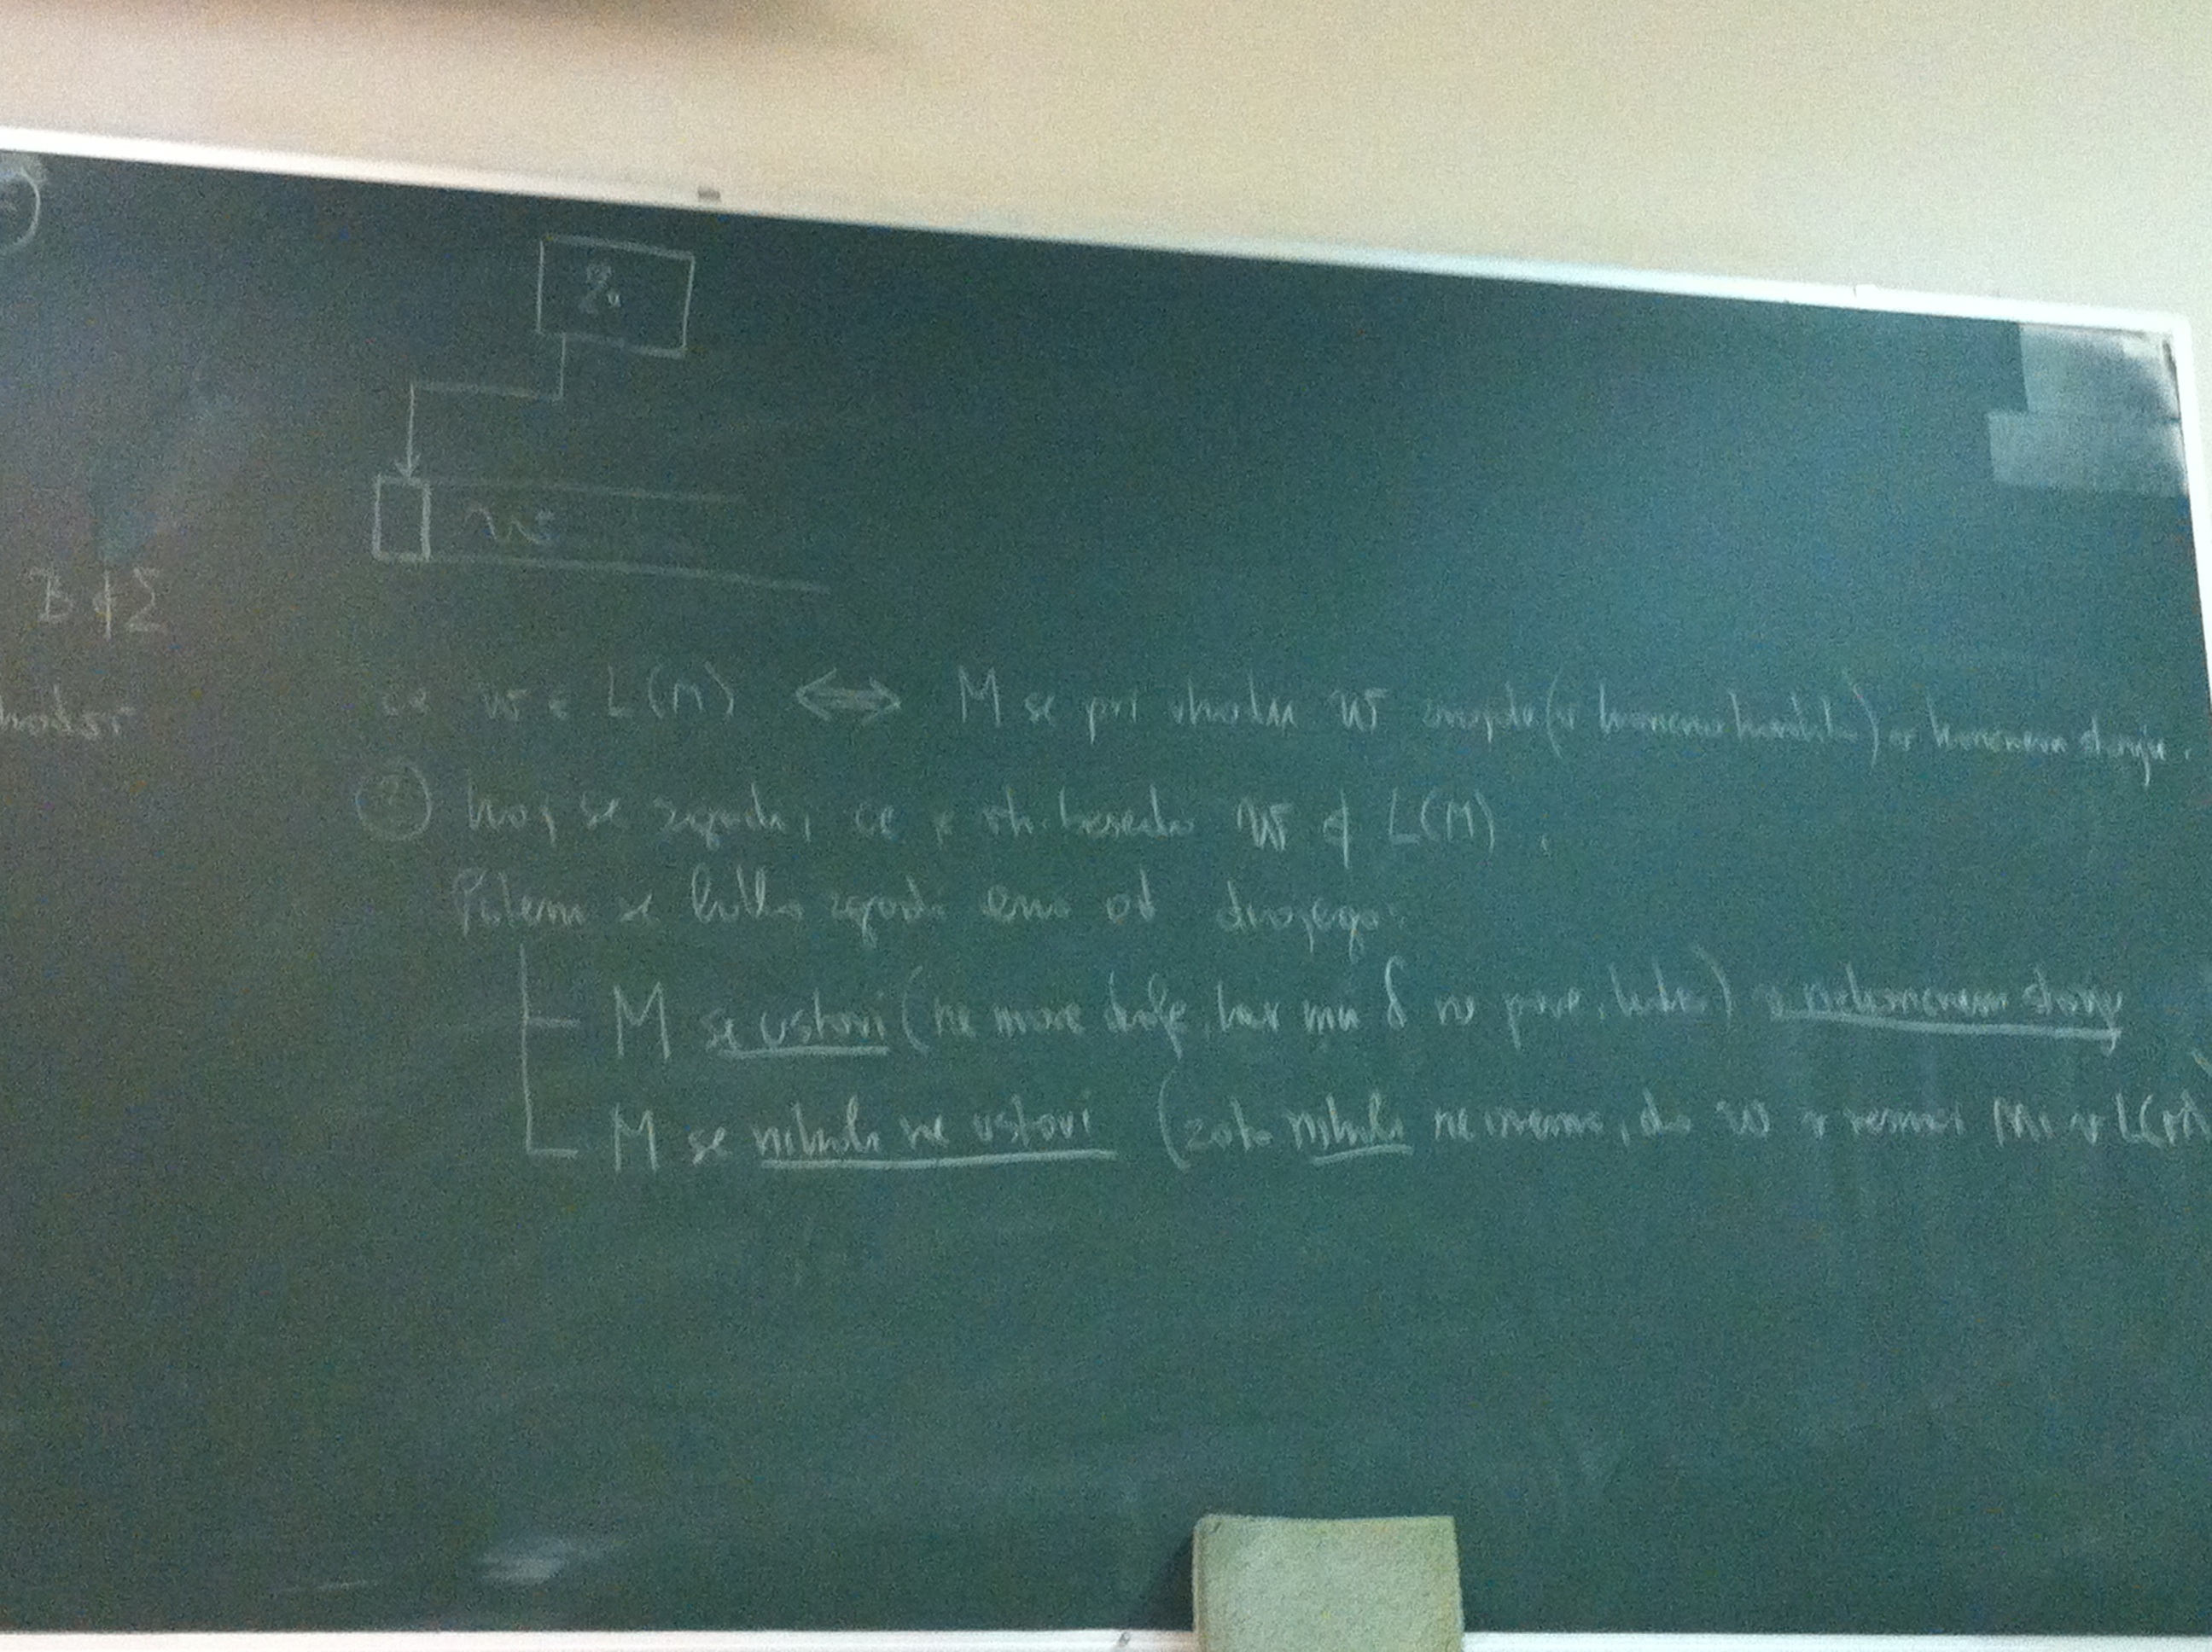 w
B ∉ Σ
če w ∈ L(M) ⟺ M se pri vhodu w znajde (v končno korakih) v končnem stanju.
? Kaj se zgodi, če je vh. beseda w ∉ L(M)
Potem se lahko zgodi eno od dvojega:
M se ustavi (ne more dalje, ker mu δ ne pove, kako) v nekončnem stanju
M se nikoli ne ustavi (zato nikoli ne vemo, da w v resnici ni v L(M)